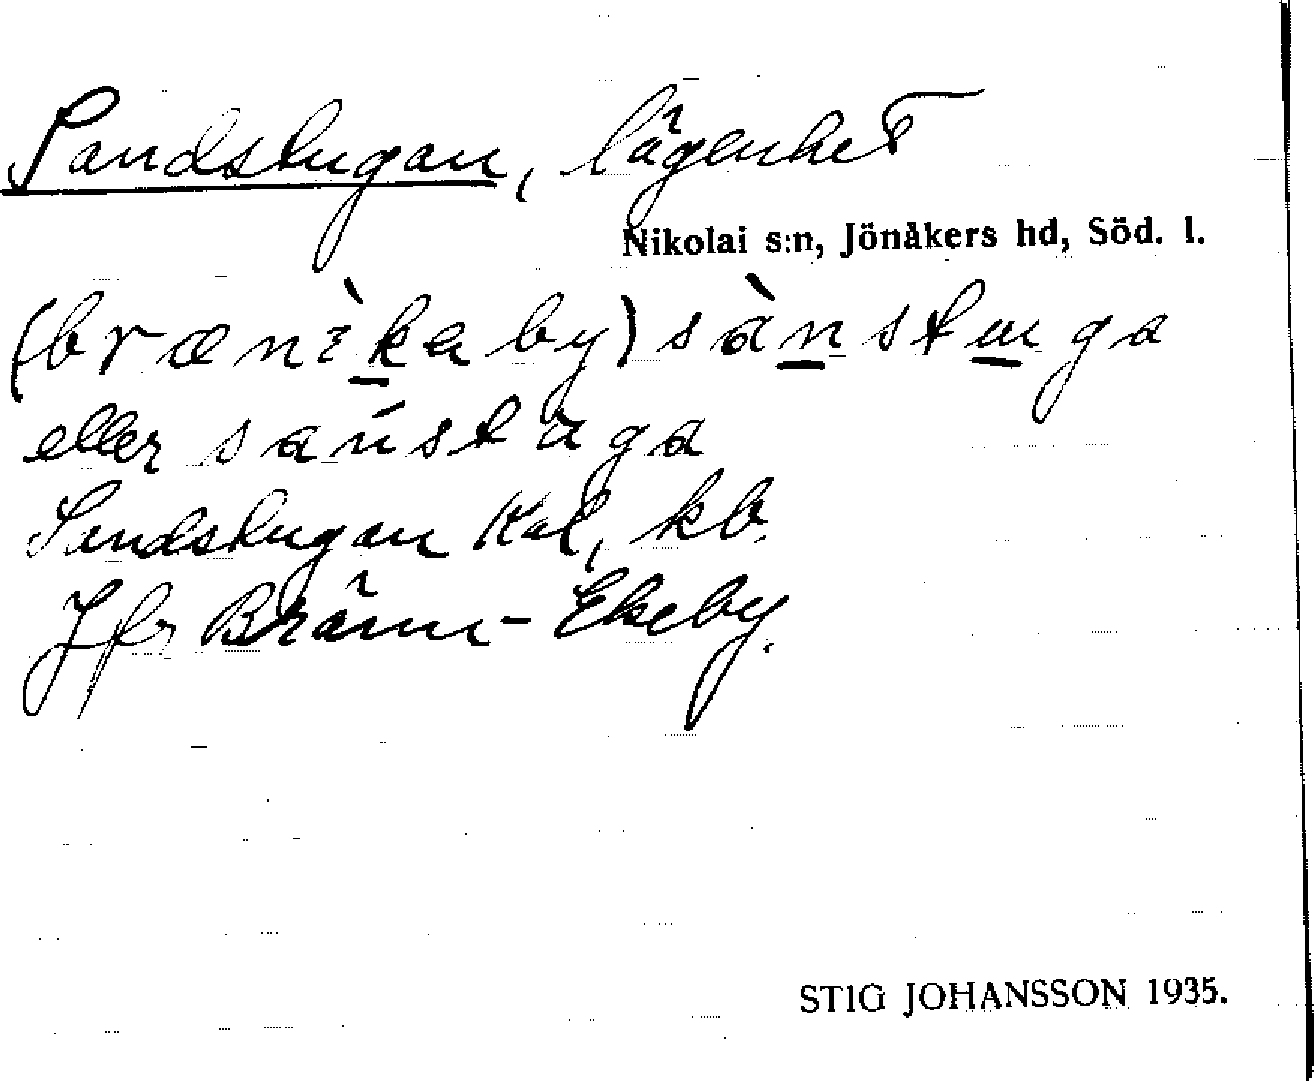 Sandstugan, lägenhet
Nikolai s:n, Jönåkers hd, Söd. l.
(brænèkaby) sànstuga
eller sanstaga
Sandstugan Kal, kb.
Jfr Bränn-Ekeby.
STIG JOHANSSON 1935.